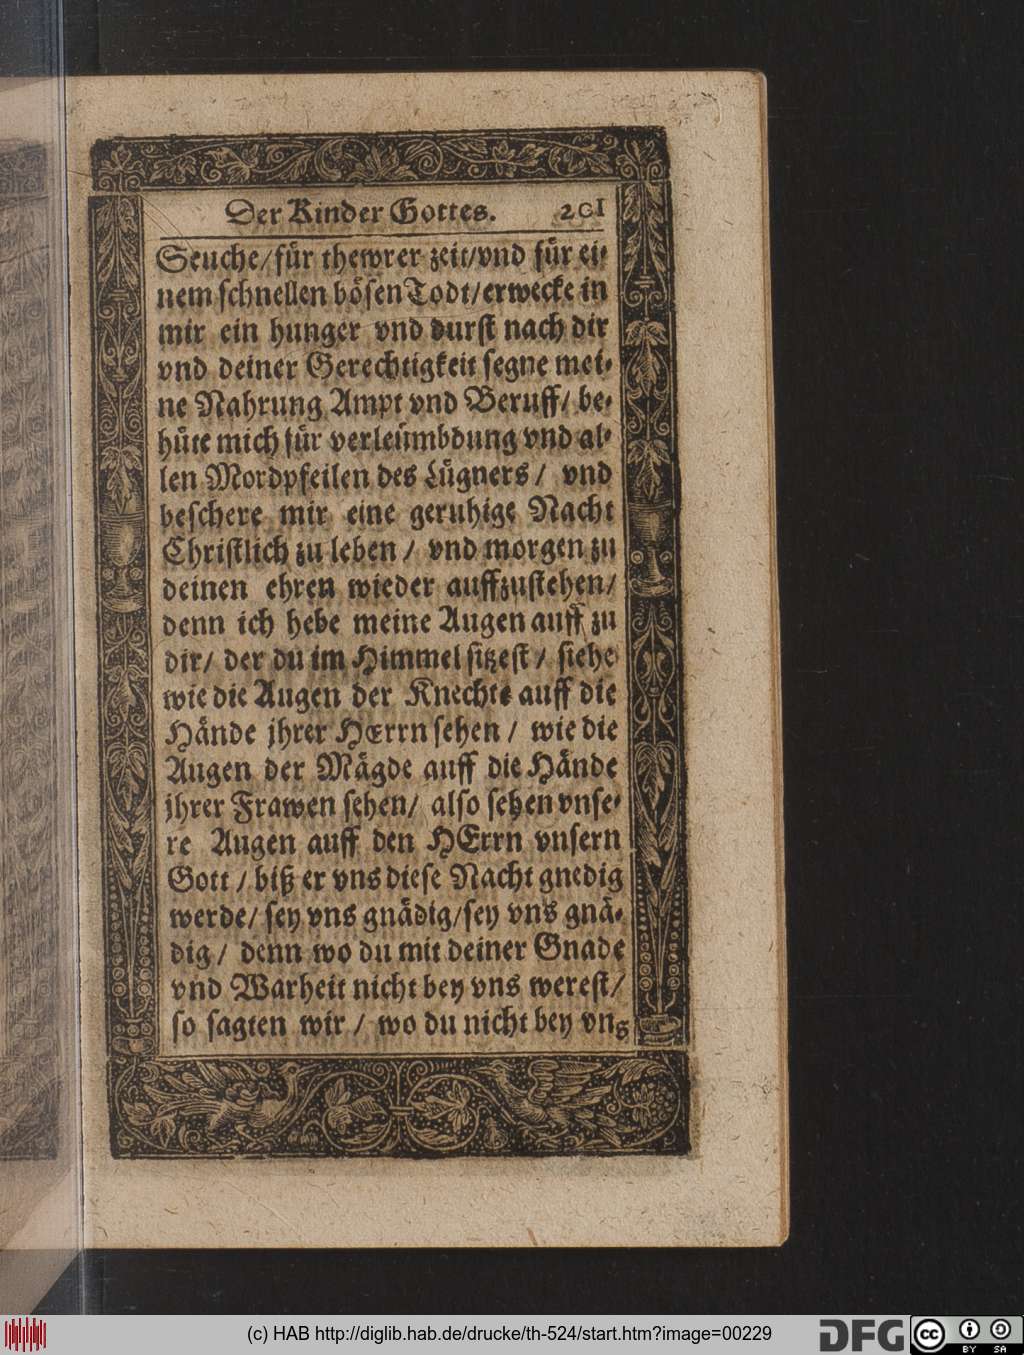 Der Kinder Gottes. 201
Seuche/für thewrer zeit/vnd für ei-
nem schnellen bösen Todt/erwecke in
mir ein hunger vnd durst nach dir
vnd deiner Gerechtigkeit segne mei-
ne Nahrung Ampt vnd Beruff/ be-
hüte mich für verleümbdung vnd al-
len Mordpfeilen des Lügners/ vnd
beschere mir eine geruhige Nacht
Christlich zu leben/ vnd morgen zu
deinen ehren wieder auffzustehen/
denn ich hebe meine Augen auff zu
dir/ der du im Himmel sitzest/ siehe
wie die Augen der Knechte auff die
Hände jhrer HErrn sehen/ wie die
Augen der Mägde auff die Hände
jhrer Frawen sehen/ also sehen vnse-
re Augen auff den HErrn vnsern
Gott/ biß er vns diese Nacht gnedig
werde/ sey vns gnädig/sey vns gnä-
dig/ denn wo du mit deiner Gnade
vnd Warheit nicht bey vns werest/
so sagten wir/ wo du nicht bey vns
(c) HAB http://diglib.hab.de/drucke/th-524/start.htm?image=00229
DFG cc BY SA